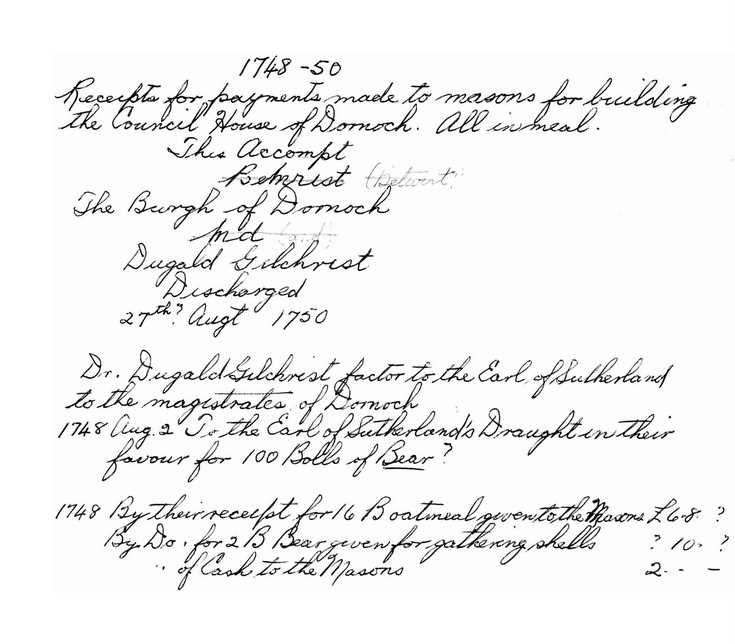 1748-50
Receipts for payments made to masons for building
the Council House of Dornoch. All in meal.
This Accompt
(Betwixt
The Burgh of Dornoch
Dugald Gilchrist
Discharged
27th? Augt 1750
Dr. Dugald Gilchrist factor to the Earl of Sutherland
to the magistrates of Dornoch
1748 Aug. 2 To the Earl of Sutherland's Draught in their
favour for 100 Bolls of Bear?
1748 By their receipt for 16 B oatmeal given to the Masons £6-8- ?
By Do. for 2 B Bear given for gathering shells ? 10- ?
" of Cash to the Masons 2 - - -